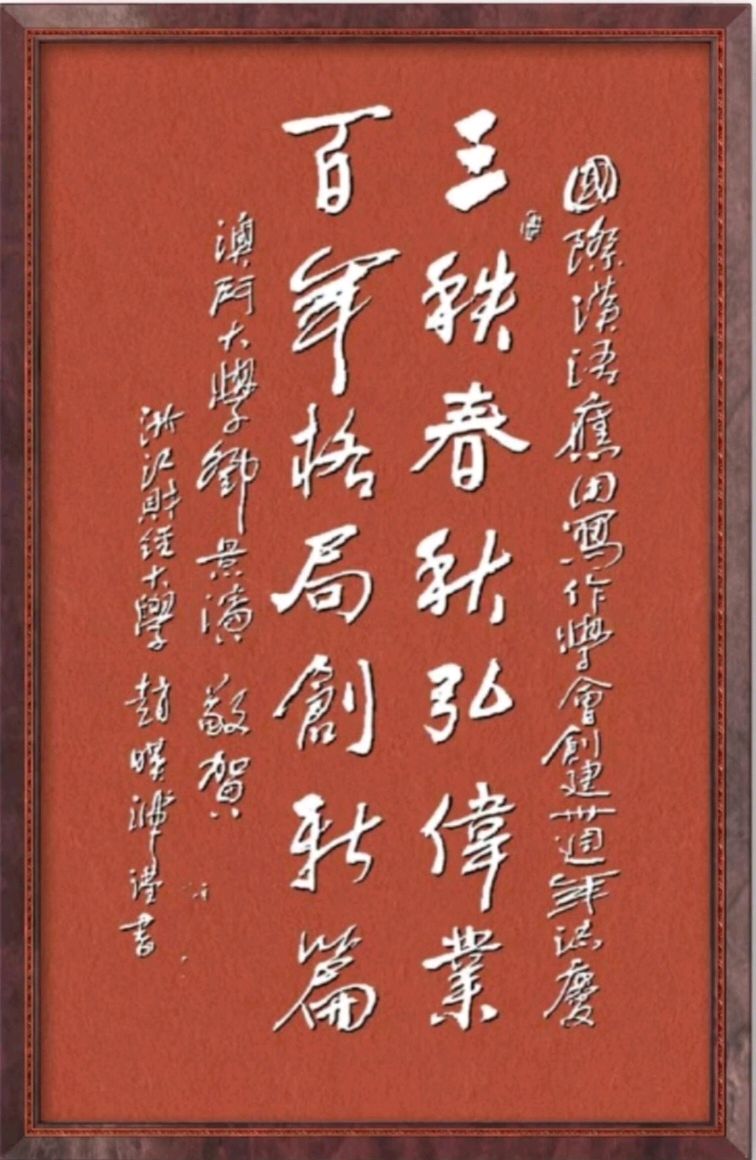 國際漢語應用寫作學會創建卅週年誌慶
三秩春秋弘偉業
百年格局創新篇
澳門大學鄧景濱敬賀
浙江財經大學趙映謹書